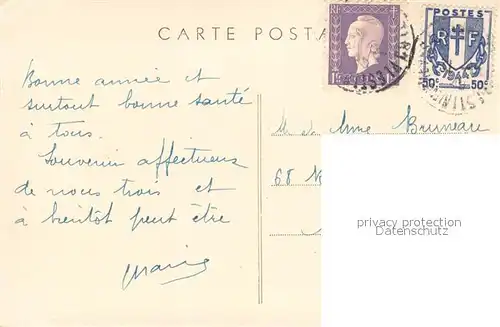 CARTE POSTA
POSTES
RF
1944
50c 50c
Bonne année et
surtout bonne santé
à tous.
Souvenir affectueux
de nous trois et
à bientôt peut être
Marie
Mme Bruneau
68
privacy protection
Datenschutz